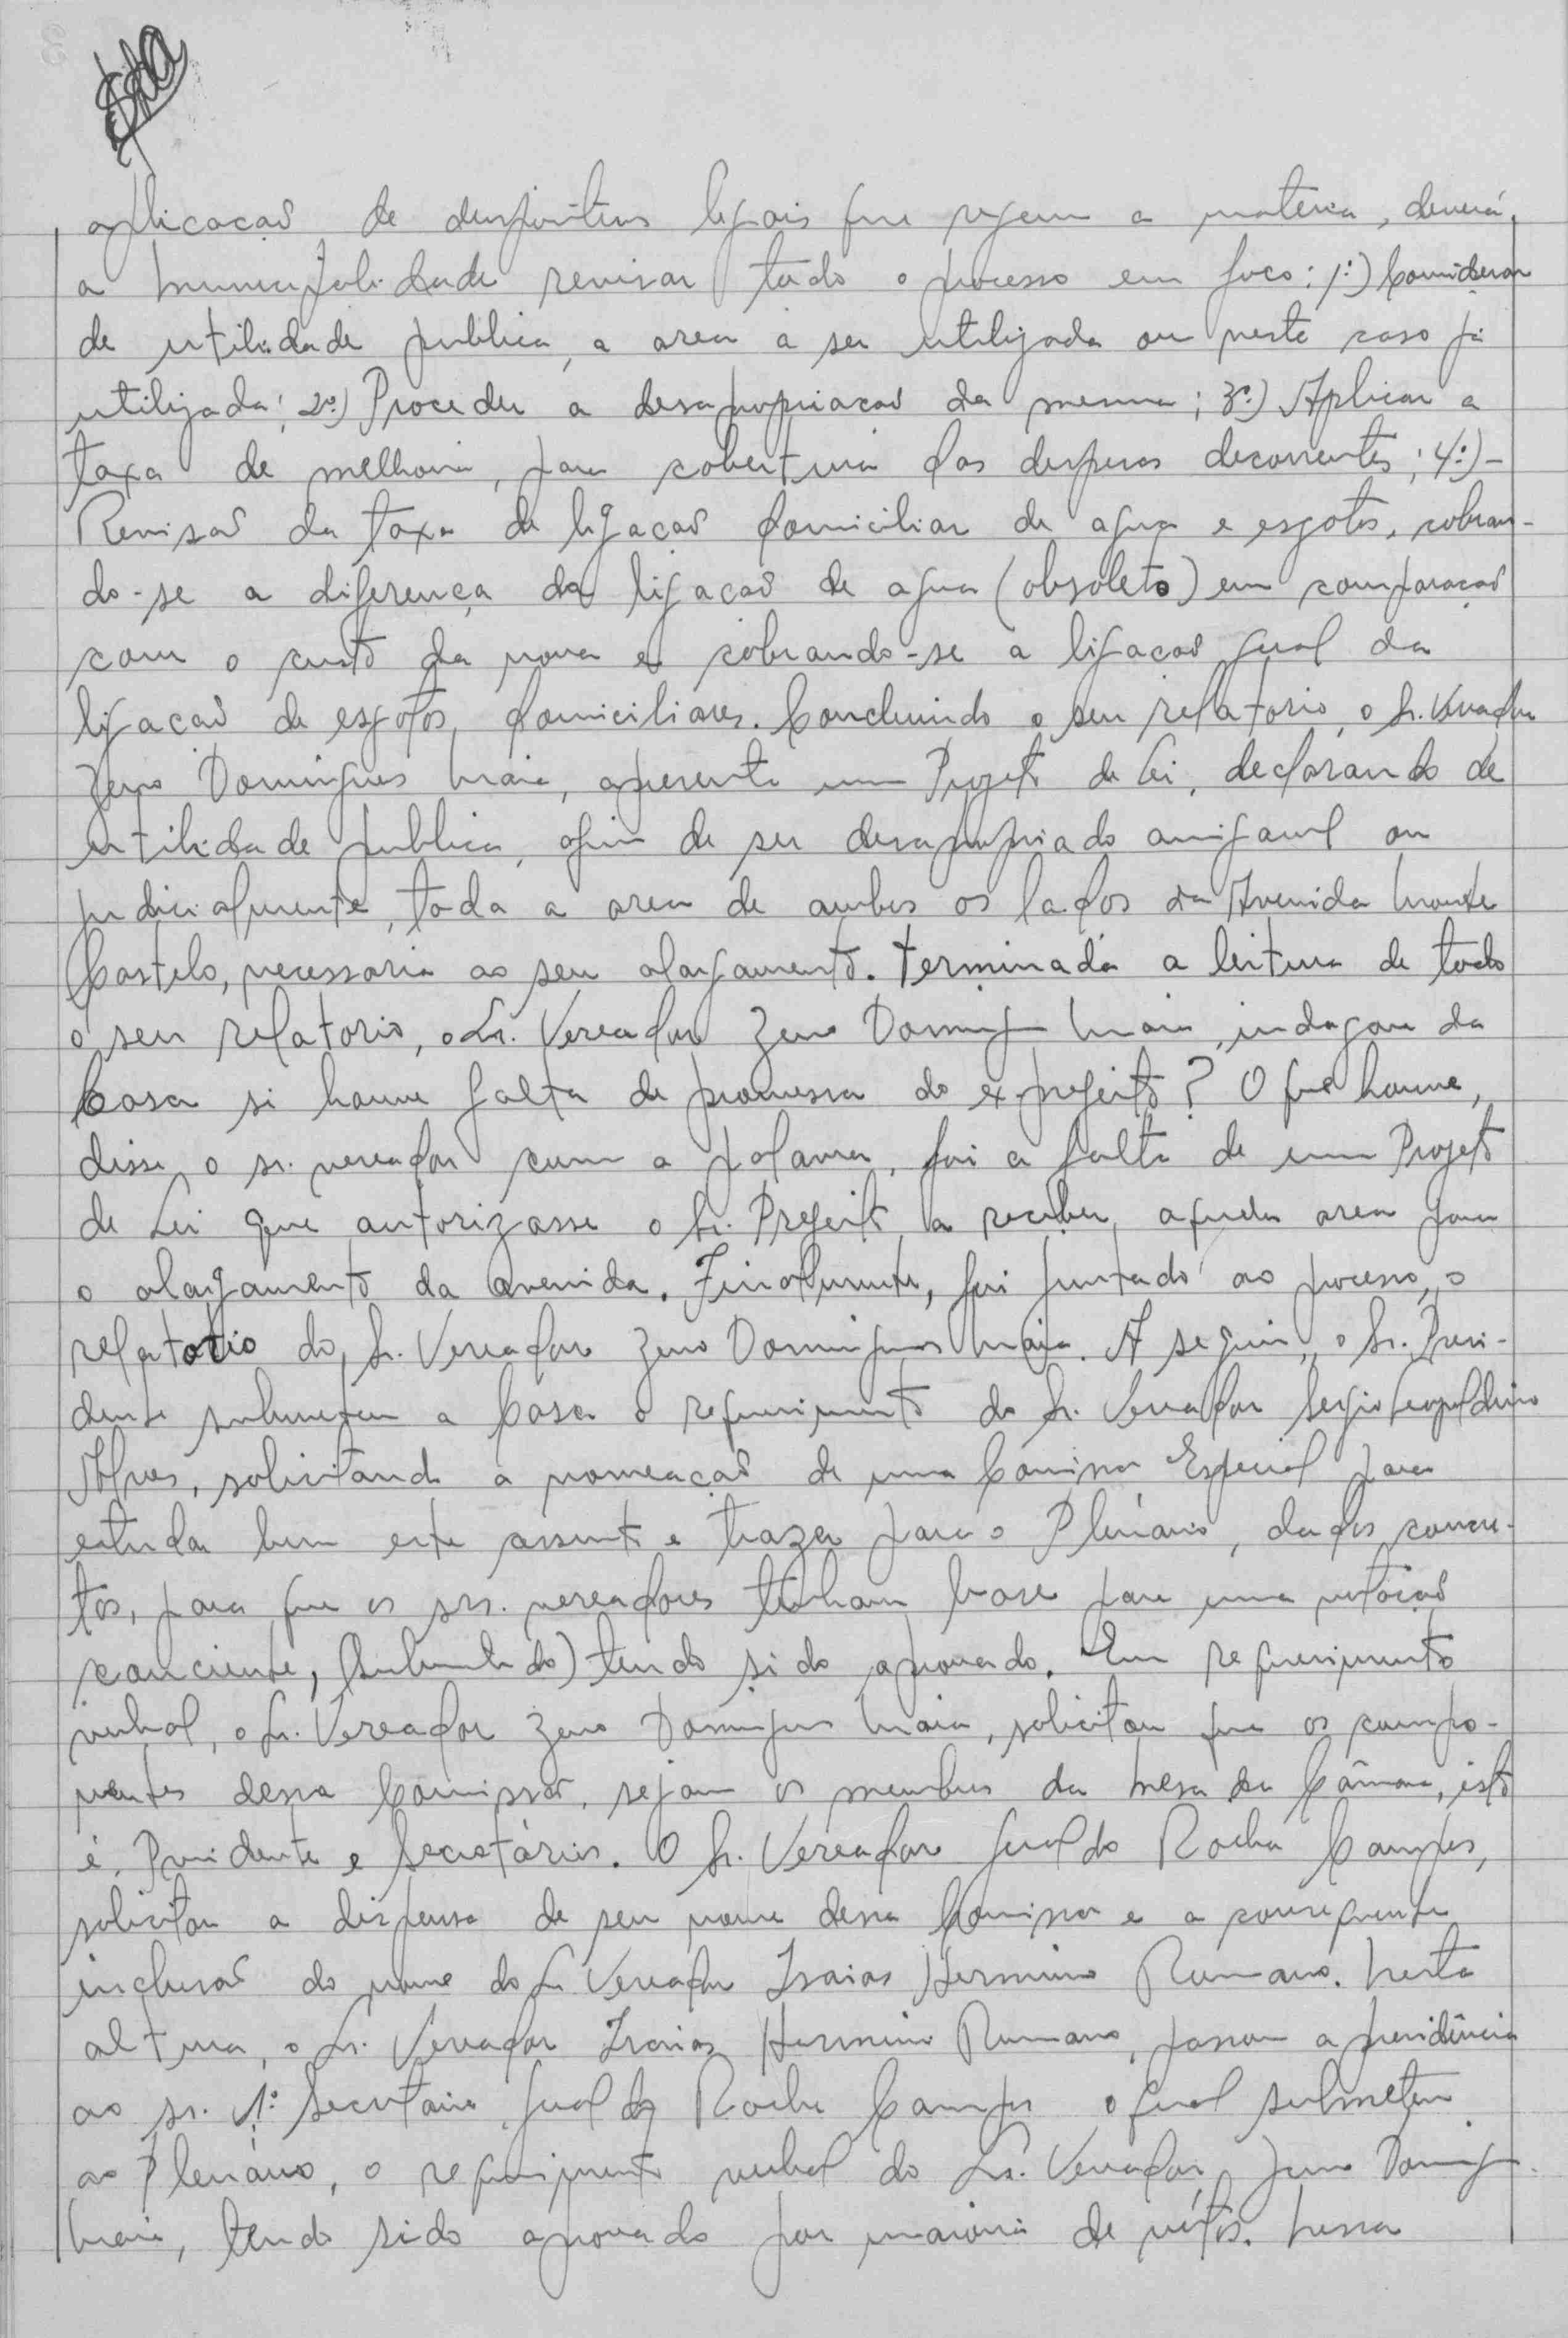 aplicacaõ de despositivos legais que regem a materia, deverá,
a municipalidade revisar todo o processo em foco: 1º) Considerar
de utilidade publica, a area a ser utilizada ou neste caso já
utilizada; 2º) Proceder a desapropriacaõ da mesma; 3º) Aplicar a
taxa de melhoria, para cobertura das despesas decorrentes; 4º)-
Revisaõ da taxa de ligacaõ domiciliar de agua e esgotos, cobran-
do-se a diferença da ligacaõ de agua (obsoleto) em comparaçaõ
com o custo da nova e cobrando-se a ligacaõ geral da
ligacaõ de esgotos, domiciliares. Concluindo o seu relatorio, o Sr. Vereador
Zeno Domingues Maia, apresenta um Projeto de Lei, declarando de
utilidade publica, afim de ser desapropriado amigavel ou
judicialmente, toda a area de ambos os lados da Avenida Monte
Castelo, necessaria ao seu alargamento. Terminada a leitura de todo
o seu relatorio, o Sr. Vereador Zeno Doming Maia, indagou da
Casa si houve falta de promessa do ex-prefeito? O que houve,
disse o sr. vereador com a palavra, foi a falta de um Projeto
de Lei que autorizasse o Sr. Prefeito a receber, aquela area para
o alargamento da avenida. Finalmente, foi juntado ao processo, o
relatorio do Sr. Vereador Zeno Domingues Maia. A seguir, o Sr. Presi-
dente submeteu a Casa o requerimento do Sr. Vereador Sergio Leopoldino
Alves, solicitando a nomeaçaõ de uma Comissaõ Especial para
estudar bem este assunto e trazer para o Plenário, dados concre-
tos, para que os srs. vereadores tenham base para uma votaçaõ
conciente, tendo sido aprovado. Em requerimento
verbal, o Sr. Vereador Zeno Domingues Maia, solicitou que os compo-
nentes dessa Comissaõ, sejam os membros da Mesa da Câmara, isto
é, Presidente e Secretários. O Sr. Vereador Geraldo Rocha Campos,
solicitou a dispensa de seu nome dessa Comissaõ e a consequente
inclusaõ do nome do Sr. Vereador Isaias Herminio Romano. Nesta
altura, o Sr. Vereador Isaias Herminio Romano, passou a presidência
ao sr. 1º Secretario Geraldo Rocha Campos o qual submeteu
ao Plenário, o requerimento verbal do Sr. Vereador, Zeno Doming
Maia, tendo sido aprovado por maioria de votos. Nessa